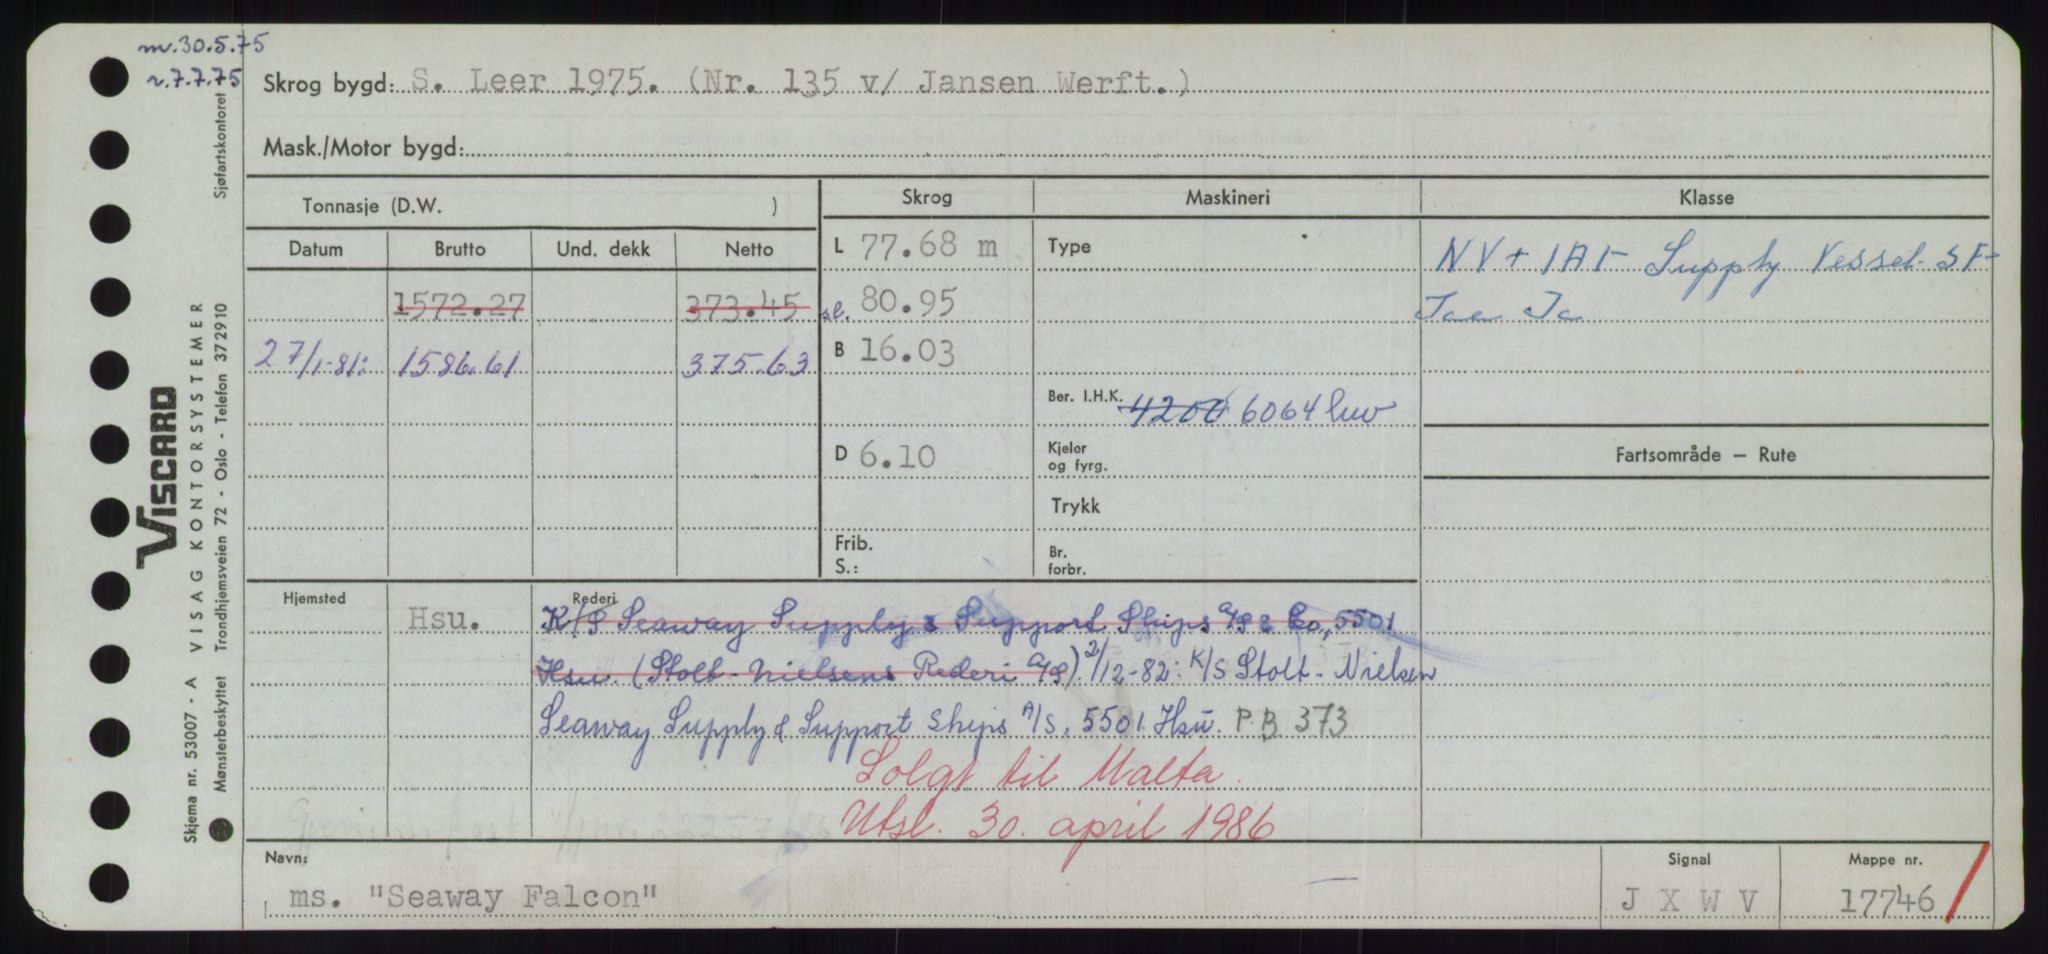 m.30.5.75
r.7.7.75
Skrog bygd: S. Leer 1975. (Nr. 135 v/ Jansen Werft.)
Mask./Motor bygd:
Tonnasje (D.W. )
Skrog
Maskineri
Klasse
Datum Brutto Und. dekk Netto
L 77.68 m
Type
NV + 1A1 - Supply Vessel - SF-
1572.27 373.45
sl. 80.95
Ice Ic
27/1-81: 1586.61 375.63
B 16.03
Ber. I.H.K. 4200 6064
D 6.10
Kjeler
og fyrg.
Fartsområde – Rute
Trykk
Frib.
S.:
Br.
forbr.
Hjemsted Hsu.
Rederi
K/S Seaway Supply & Support Ships A/S & Co., 5501
Hsu. (Stolt-Nielsens Rederi A/S). 2/12-82: K/S Stolt-Nielsen
Seaway Supply & Support Ships A/S, 5501 Hsu. P.B 373
Solgt til Malta.
Utsl. 30. april 1986
Navn:
ms. "Seaway Falcon"
Signal
J X W V
Mappe nr.
17746
Sjøfartskontoret
VISCARD
Skjema nr. 53007 - A VISAG KONTORSYSTEMER
Mønsterbeskyttet Trondhjemsveien 72 - Oslo - Telefon 372910